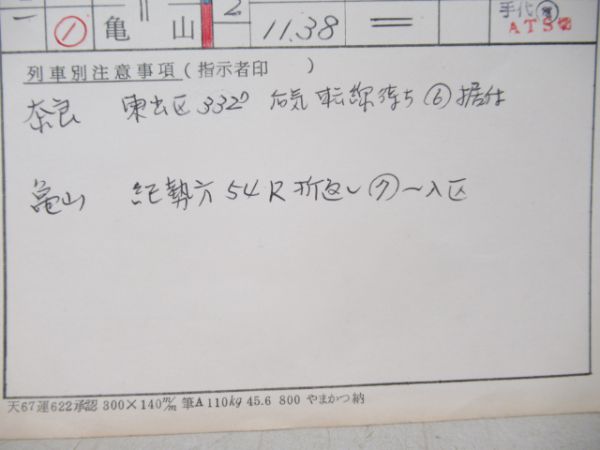 二 ① 亀山 = 2 11.38 = 手代 ATS
列車別注意事項（指示者印　　）
奈良 東出区 332D 転線待ち ⑥据付
亀山 紀勢方 54R 折返し ⑦～入区
天67運622承認 300×140㎜ 筆A110kg 45.6 800 やまかつ納